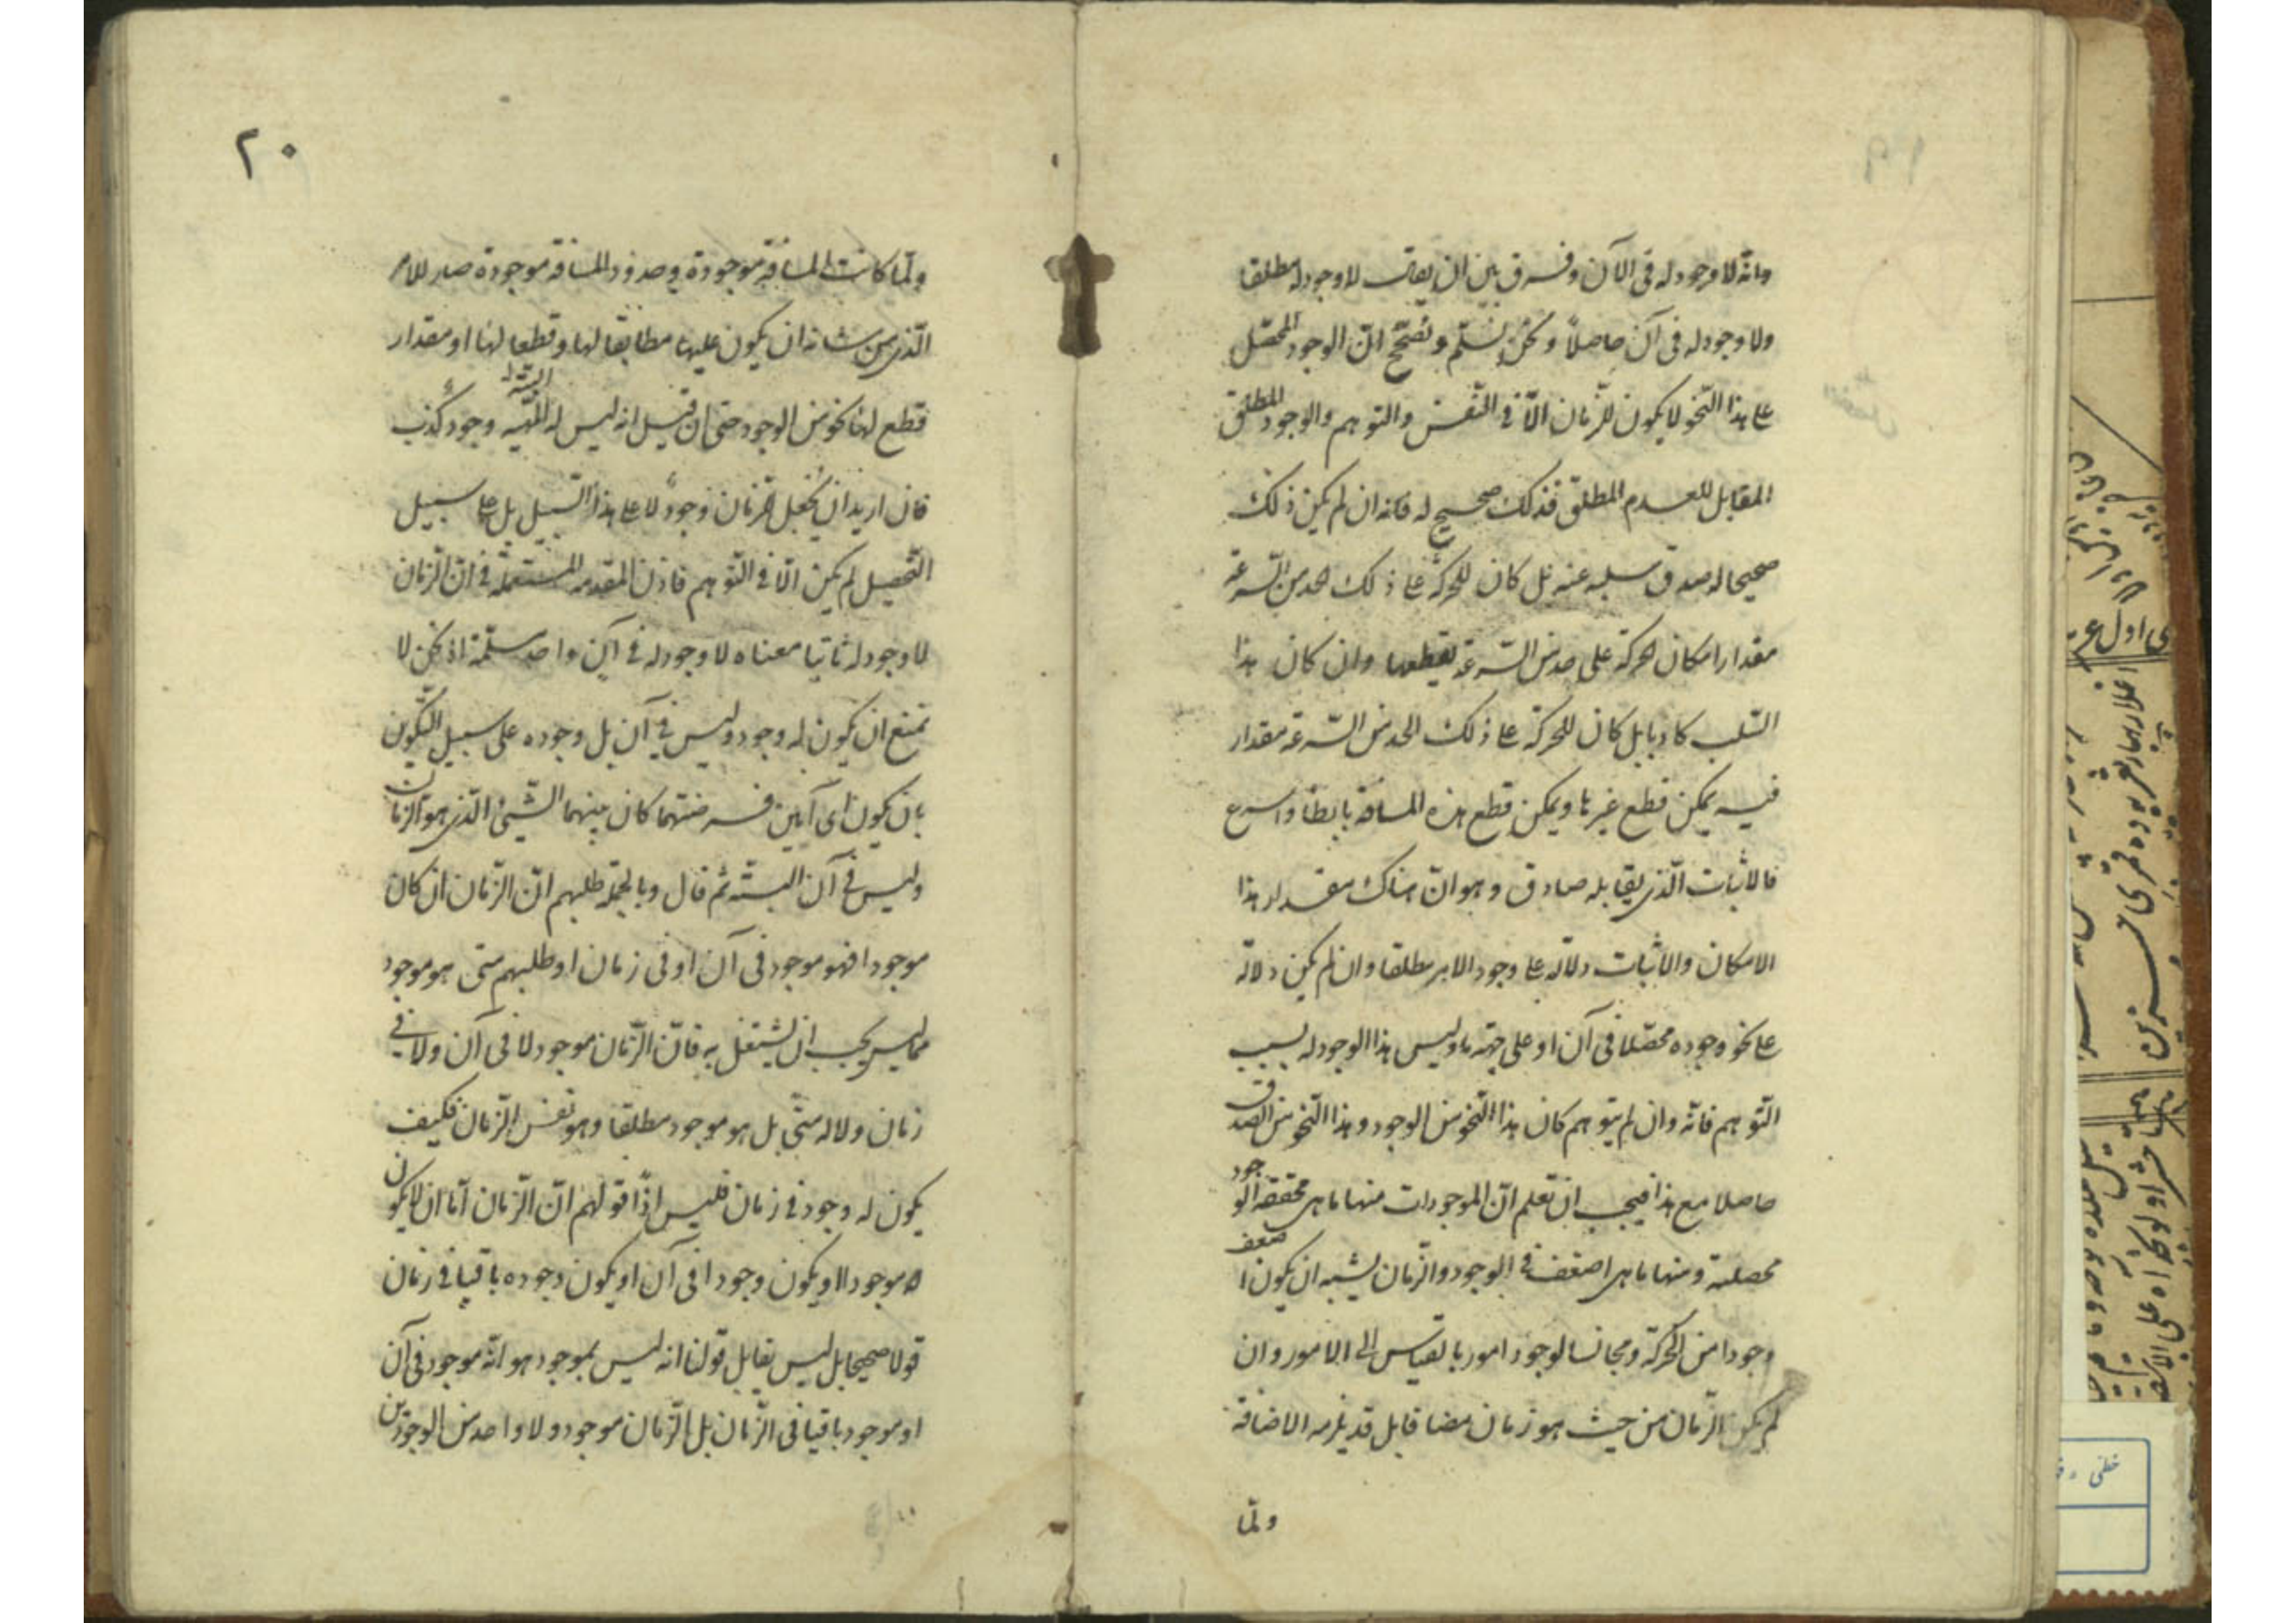 وانّه لا وجود له فى الآن وفرق بين ان يقال لا وجود له مطلقا
ولا وجود له فى آن حاصلاً ونحن نسلّم ونصحّح انّ الوجود المحصّل
على هذا النّحو لا يكون للزّمان الّا فى النّفس والتوهم والوجود المطلق
المقابل للعدم المطلق فذلك صحيح له فانه ان لم يكن ذلك
صحيحا له صدق سلبه عنه بل كان للحركة على ذلك الحد من السّرعة
مقدار امكان لحركة على حد من السّرعة يقطعها وان كان هذا
السّلب كاذبا بل كان للحركة على ذلك الحد من السّرعة مقدار
فيه يمكن قطع غيرها ويمكن قطع هذه المسافة بابطأ واسرع
فالاثبات الّذى يقابله صادق وهو انّ هناك مقدار هذا
الامكان والاثبات دلالة على وجود الامر مطلقا وان لم يكن دلالة
على نحو وجوده محصّلا فى آن او على جهة ما وليس هذا الوجود له بسبب
التّوهم فانّه وان لم يتوهم كان هذا النّحو من الوجود وهذا النّحو من الصدق
حاصلا مع هذا فيجب ان تعلم انّ الموجودات منها ما هى محققة الوجود
محصلة ومنها ما هى اضعف فى الوجود والزّمان يشبه ان يكون اضعف
وجودا من الحركة ومجانسا لوجود امور بالقياس الى الامور وان
لم يكن الزّمان من حيث هو زمان مضافا بل قد يلزمه الاضافة
ولمّا
٢٠
ولمّا كانت المسافة موجودة وحدود المسافة موجودة صار للامر
الّذى من شانه ان يكون عليها مطابقا لها وقطعا لها او مقدار
قطع لها نحو من الوجود حتى ان قيل انه ليس له البتّة وجود كذب
فان اريد ان يجعل للزمان وجود لا على هذا السّبيل بل على سبيل
التّحصيل لم يكن الّا فى التّوهم فاذن المقدمه المستعملة فى انّ الزّمان
لا وجود له ثابتا معناه لا وجود له فى آن واحد مسلّمة اذ نحن لا
نمنع ان يكون له وجود وليس فى آن بل وجوده على سبيل التّكون
بان يكون اى آنين فرضتهما كان بينهما الشّيئ الّذى هو الزمان
وليس فى آن البتّة ثم قال وبالجملة طلبهم انّ الزّمان ان كان
موجودا فهو موجود فى آن او فى زمان او طلبهم متى هو موجود
مما ليس يجب ان يشتغل به فانّ الزّمان موجود لا فى آن ولا فى
زمان ولا له متى بل هو موجود مطلقا وهو نفس الزّمان فكيف
يكون له وجود فى زمان فليس اذًا قولهم انّ الزّمان امّا ان لا يكون
موجودا او يكون وجودا فى آن او يكون وجوده باقيا فى زمان
قولا صحيحا بل ليس يقابل قولنا انه ليس بموجود هو انّه موجود فى آن
او موجود باقيا فى الزّمان بل الزّمان موجود ولا واحد من الوجودين